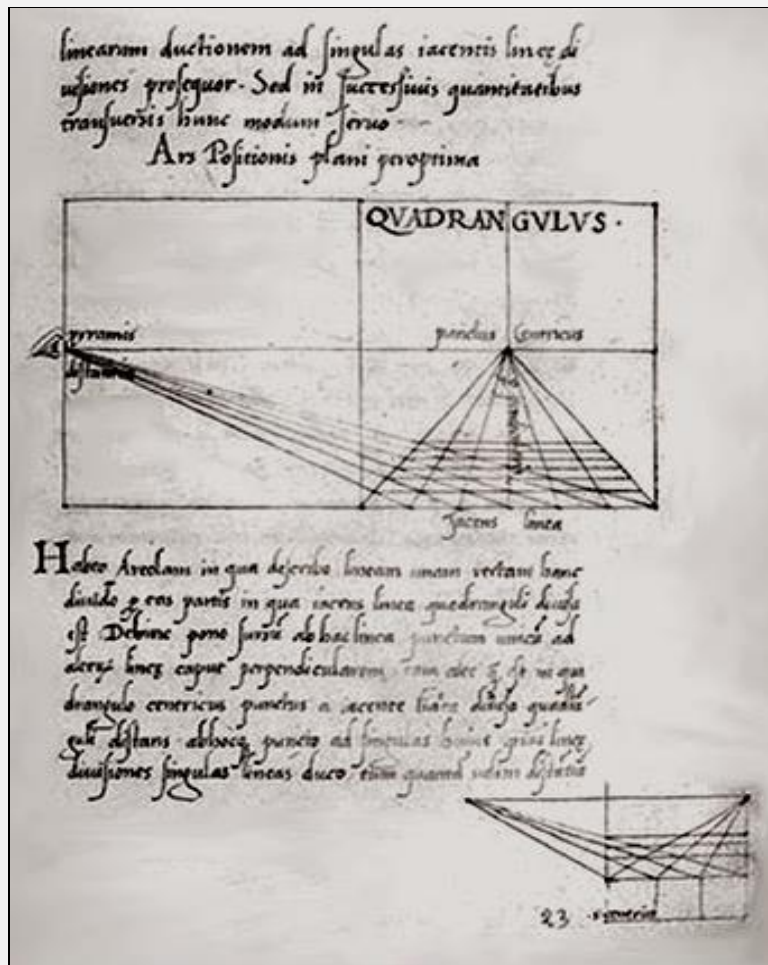 linearum ductionem ad singulas iacentis lineę di
uisiones prosequor. Sed in successiuis quantitatibus
transuersis hunc modum seruo
Ars Positionis plani peroptima
QVADRANGVLVS.
pyramis
punctus Centricus
distantia
Jacens linea
Habeo Areolam in qua describo lineam unam rectam hanc
diuido ꝑ eas partis in qua iacens linea quadranguli diuisa
est Dehinc pono sursũ ab hac linea punctum unicũ ad
alterũ lineę caput perpendicularem in qua
drangulo centricus punctus a iacente diuisa
distans abhocq puncto ad singulas huius lineę
diuisiones singulas lineas duco tum quantã
23